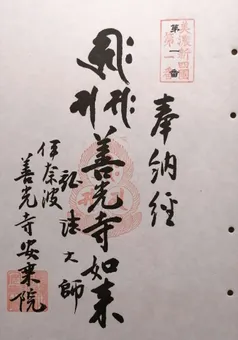 美濃新四国
第一番
奉納経
善光寺如来
弘法大師
伊奈波
善光寺安乗院